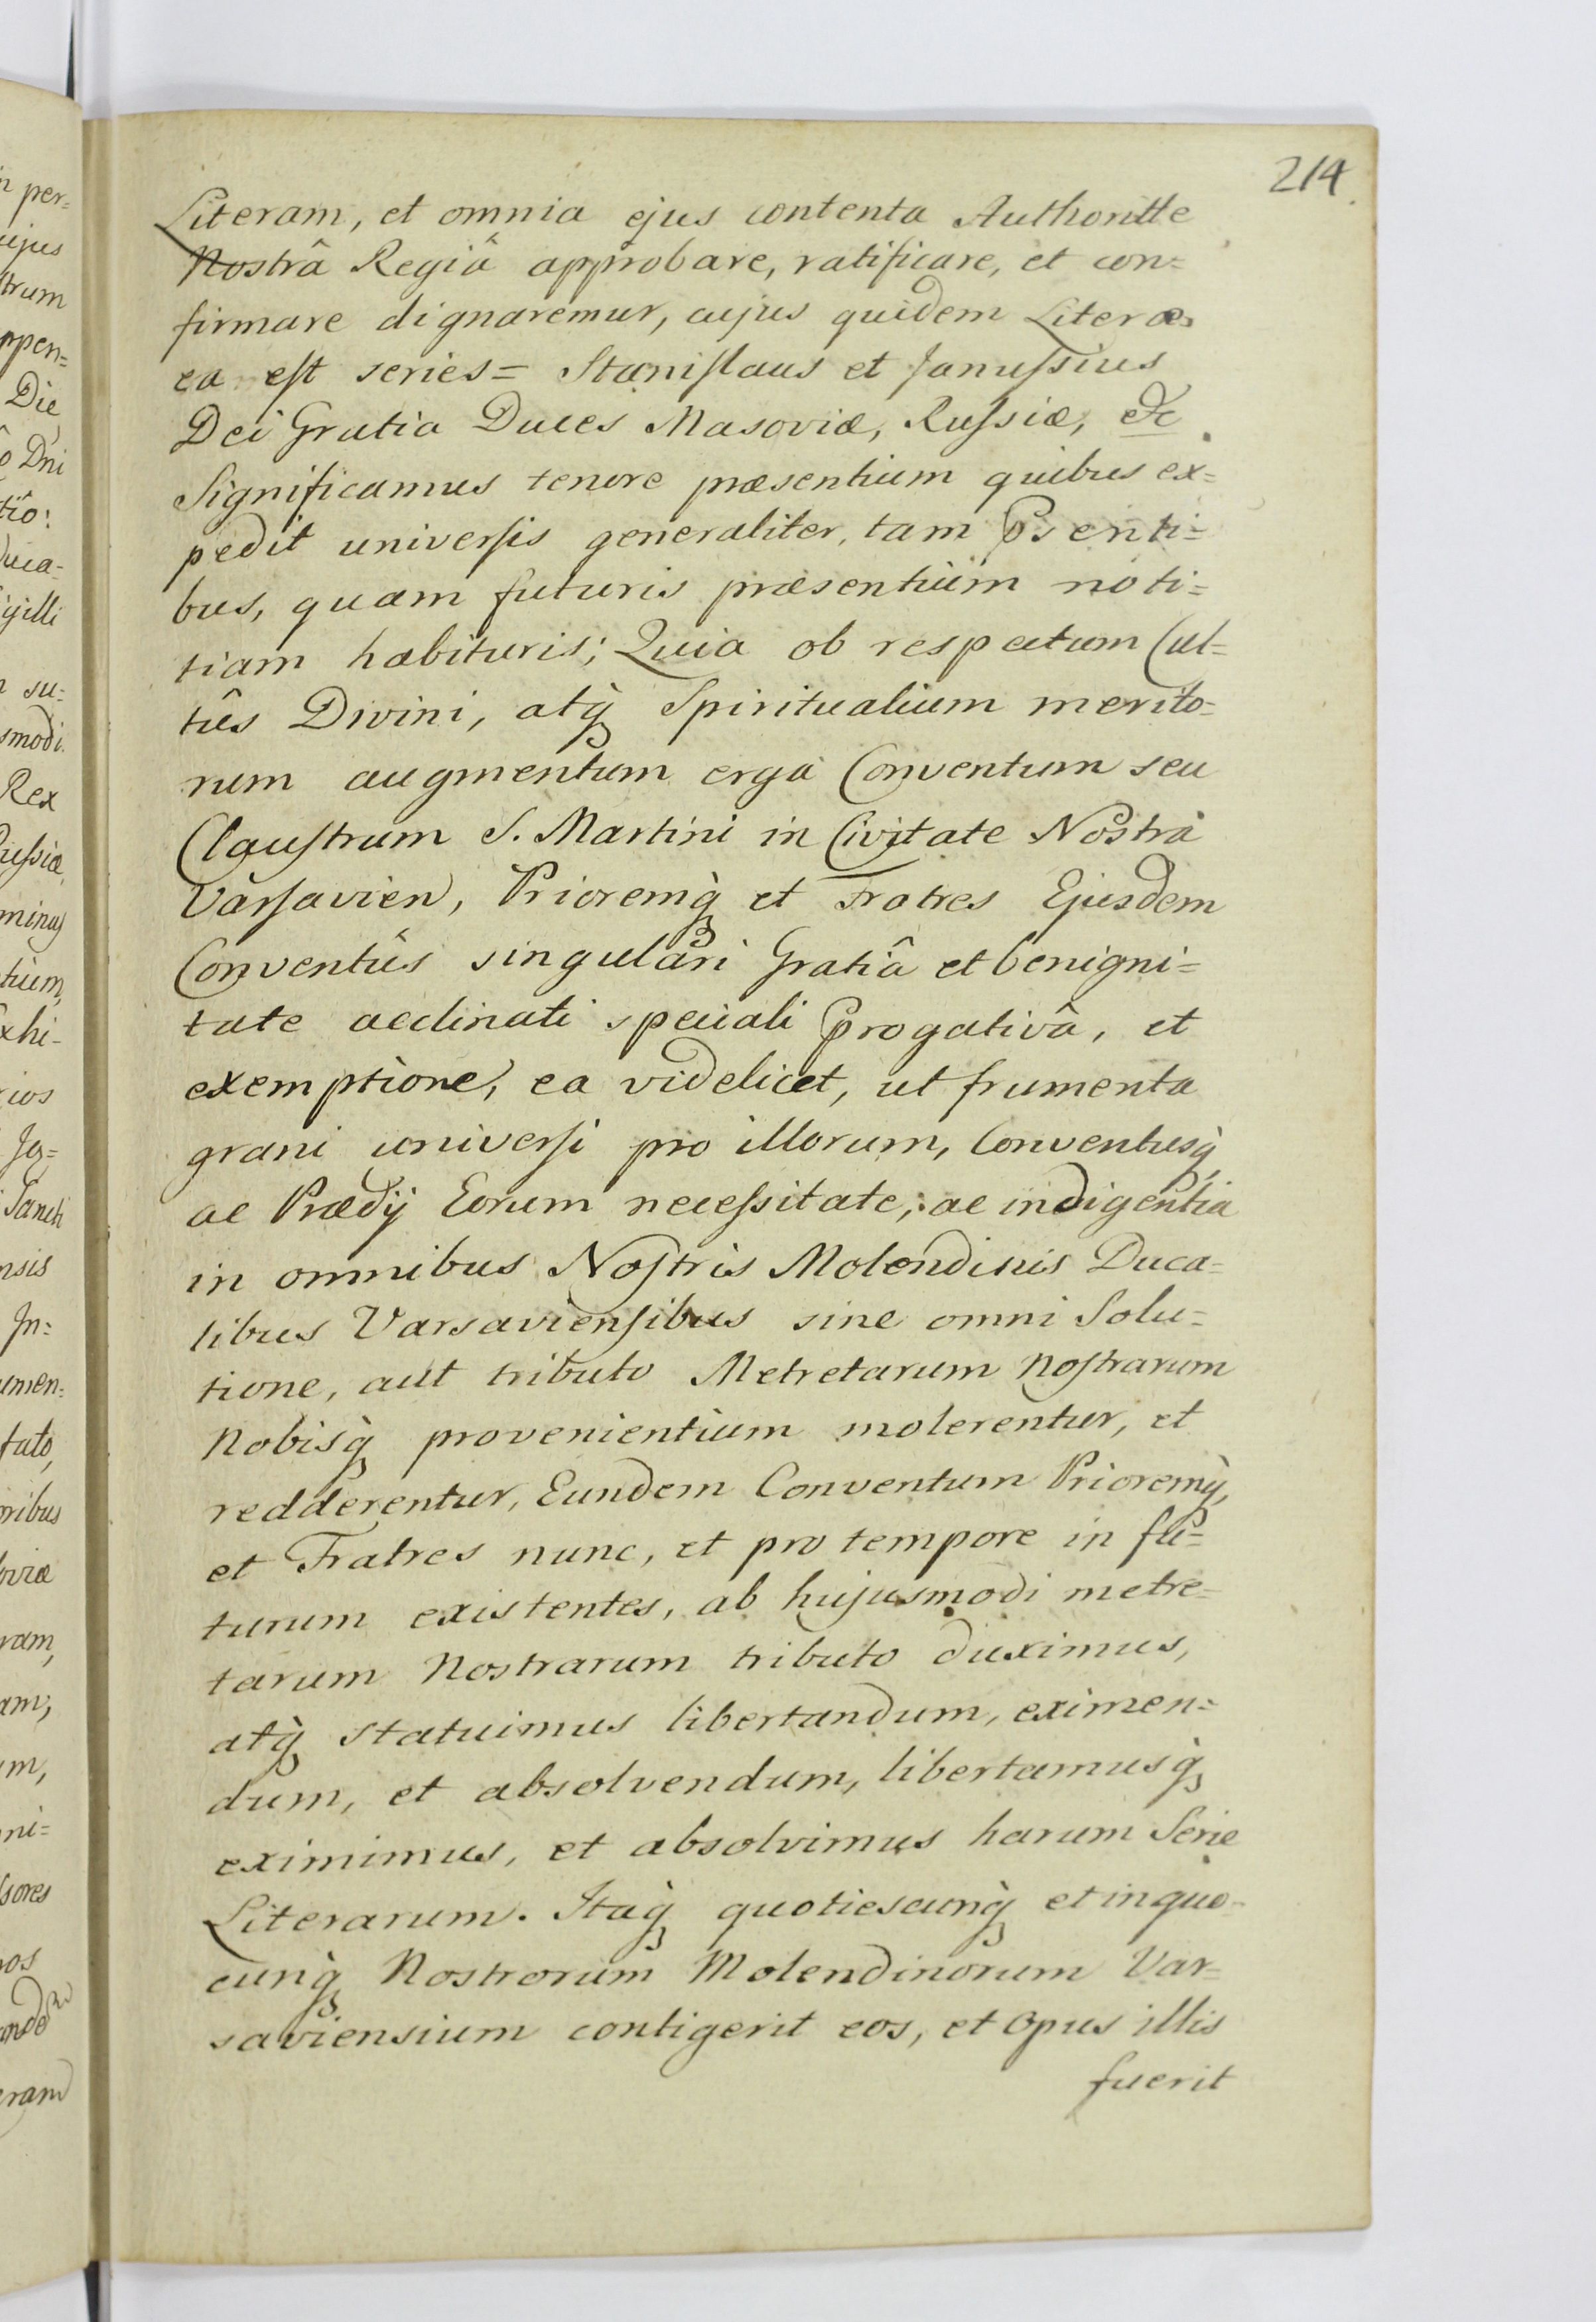 214.
Literam, et omnia ejus contenta Authoritte
Nostrâ Regiâ approbare, ratificare, et con=
firmare dignaremur, cujus quidem Literæ
ea est series = Stanislaus et Janussius
Dei Gratia Duces Masoviæ, Russiæ, &c
Significamus tenore præsentium quibus ex=
pedit universis generaliter, tam Psenti=
bus, quam futuris præsentium noti=
tiam habituris; Quia ob respectum Cul=
tûs Divini, atq̀ Spiritualium merito=
rum augmentum erga Conventum seu
Claustrum S. Martini in Civitate Nostrâ
Varsavien, Prioremq̀ et Fratres Ejusdem
Conventûs singulari Gratiâ et benigni=
tate acclinati speciali Progativâ, et
exemptione, ea videlicet, ut frumenta
grani universi pro illorum, Conventusq̀,
ac Prædij Eorum necessitate, ac indigentia
in omnibus Nostris Molendinis Duca=
libus Varsaviensibus sine omni Solu=
tione, aut tributo Metretarum Nostrarum
Nobisq̀ provenientium molerentur, et
redderentur, Eundem Conventum Prioremq̀,
et Fratres nunc, et pro tempore in fu=
turum existentes, ab hujusmodi metre=
tarum Nostrarum tributo duximus,
atq̀ statuimus libertandum, eximen=
dum, et absolvendum, libertamusq̀
eximimus, et absolvimus harum Serie
Literarum. Itaq̀ quotiescunq̀ et in quo=
cunq̀ Nostrorum Molendinorum Var=
saviensium contigerit eos, et Opus illis
fuerit